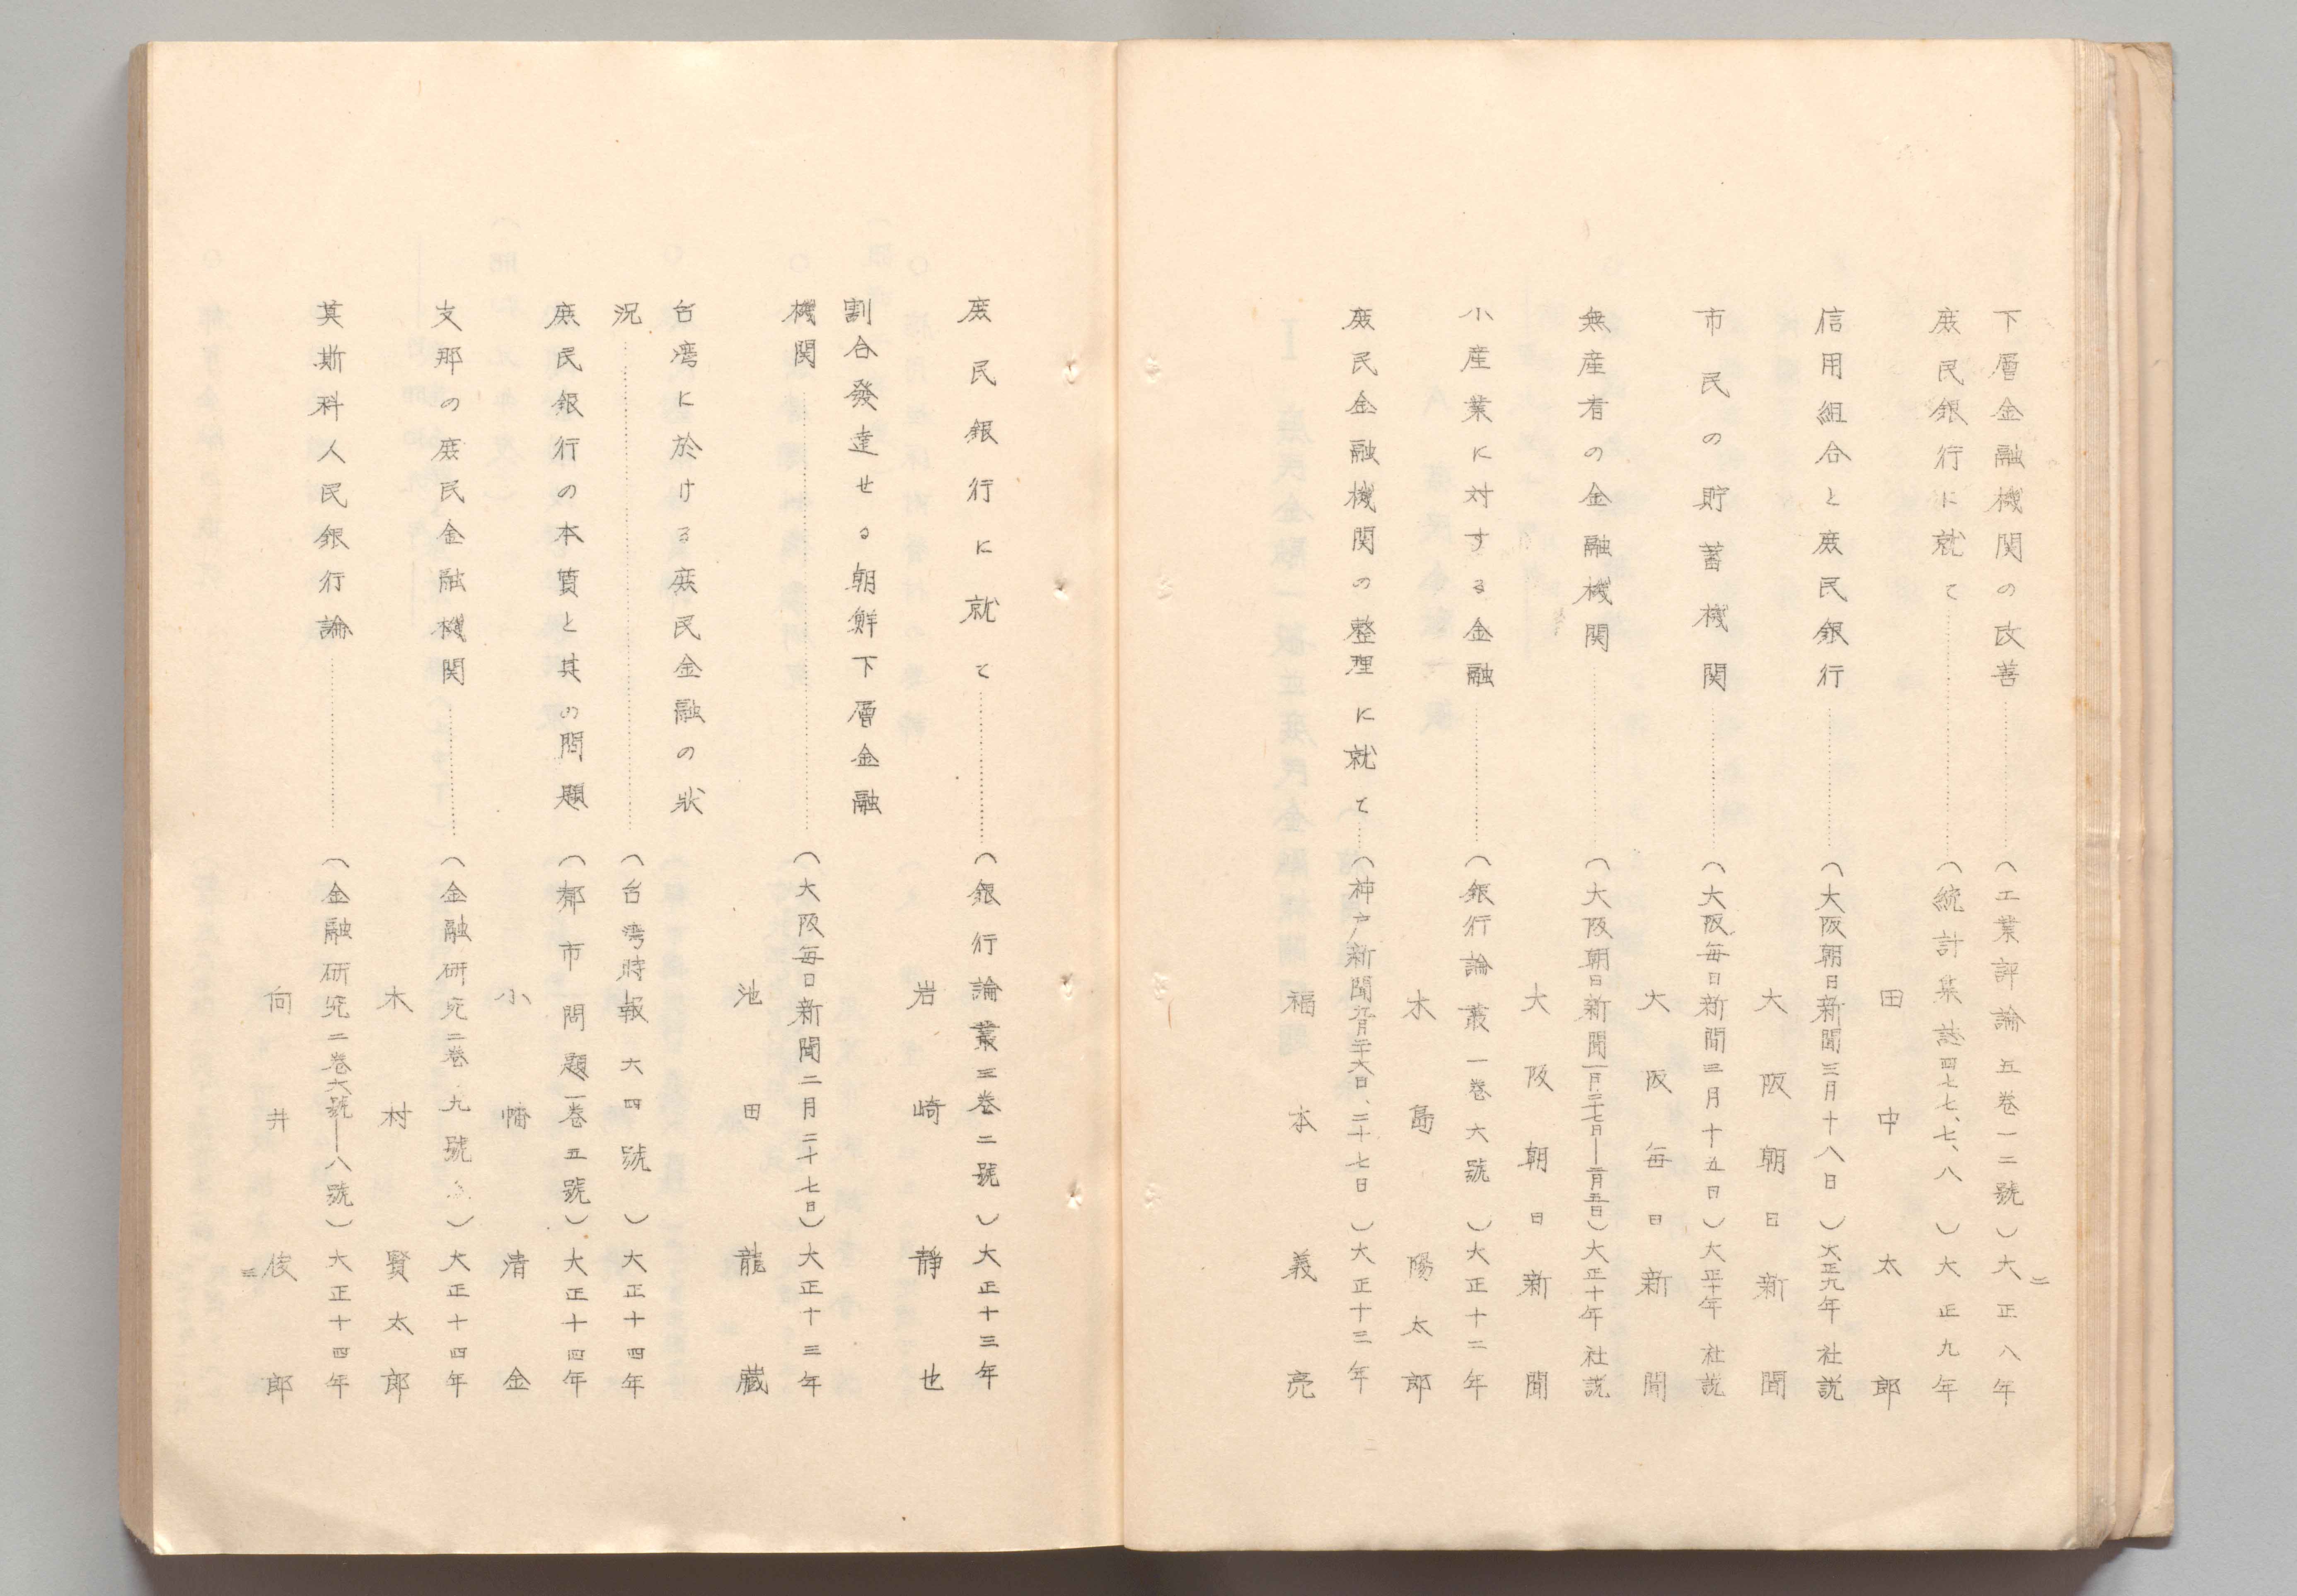 二
下層金融機関の改善………(工業評論五巻一二號)大正八年
庶民銀行に就て………(統計集誌四七七、七、八)大正九年
田中太郎
信用組合と庶民銀行………(大阪朝日新聞三月十八日)大正九年社説
大阪朝日新聞
市民の貯蓄機関………(大阪毎日新聞三月十五日)大正十年社説
大阪毎日新聞
無産者の金融機関………(大阪朝日新聞一月二十七日―二月五日)大正十年社説
大阪朝日新聞
小産業に対する金融………(銀行論叢一巻六號)大正十二年
木島陽太郎
庶民金融機関の整理に就て…(神戸新聞九月二十六日、二十七日)大正十三年
福本義亮
庶民銀行に就て………(銀行論叢三巻二號)大正十三年
岩崎靜也
割合發達せる朝鮮下層金融
機関………(大阪毎日新聞二月二十七日)大正十三年
池田龍蔵
台湾に於ける庶民金融の狀
況………(台湾時報六四號)大正十四年
庶民銀行の本質と其の問題(都市問題一巻五號)大正十四年
小幡清金
支那の庶民金融機関………(金融研究二巻九號)大正十四年
木村賢太郎
莫斯科人民銀行論………(金融研究二巻六號―八號)大正十四年
向井俊郎
三